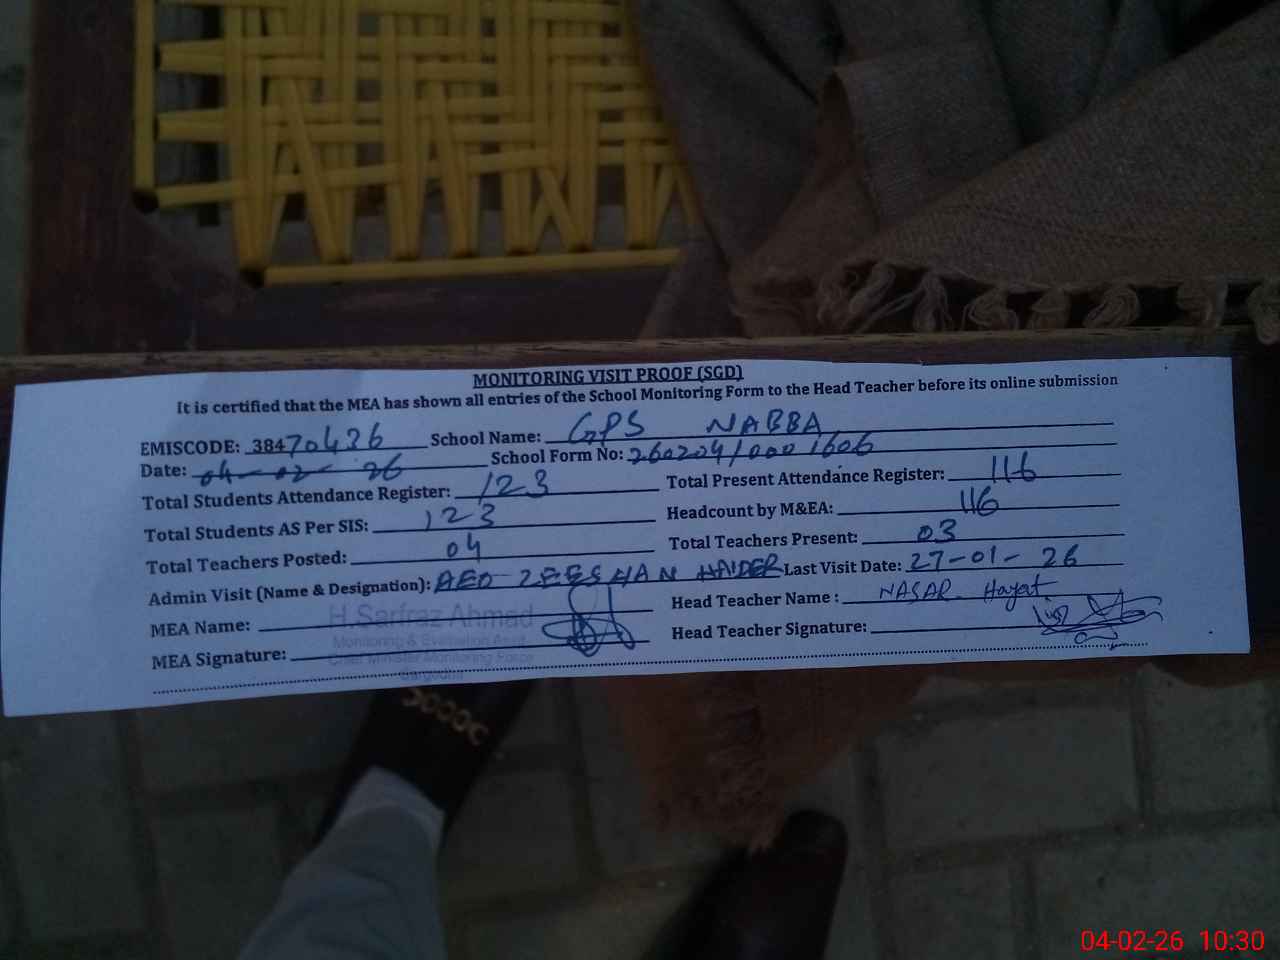 MONITORING VISIT PROOF (SGD)
It is certified that the MEA has shown all entries of the School Monitoring Form to the Head Teacher before its online submission
EMISCODE: 38470436 School Name: GPS NABBA
Date: 04-02-26 School Form No: 260204/0001606
Total Students Attendance Register: 123 Total Present Attendance Register: 116
Total Students AS Per SIS: 123 Headcount by M&EA: 116
Total Teachers Posted: 04 Total Teachers Present: 03
Admin Visit (Name & Designation): AEO-ZEESHAN HAIDER Last Visit Date: 27-01-26
MEA Name: H.Sarfraz Ahmad Head Teacher Name : NASAR Hayat
Monitoring & Evaluation Asstt.
MEA Signature: Head Teacher Signature:
Chief Minister Monitoring Force
Sargodha
04-02-26 10:30